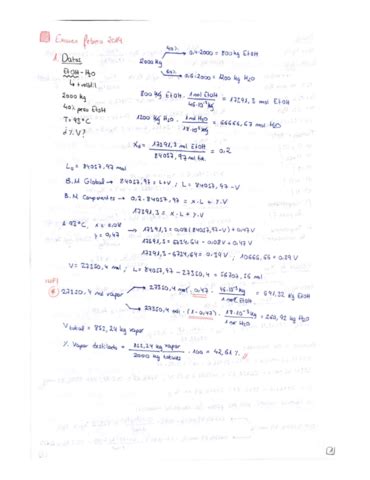 Examen Febrero 2014
1. Datos
EtOH - H₂O
↳ + volátil
2000 kg
40% peso EtOH
T = 92°C
¿% V?
2000 kg
40% → 0.4·2000 = 800 kg EtOH
60% → 0.6·2000 = 1200 kg H₂O
800 kg EtOH · 1 mol EtOH / 46·10⁻³ kg = 17391,3 mol EtOH
1200 kg H₂O · 1 mol H₂O / 18·10⁻³ kg = 66666,67 mol H₂O
X₀ = 17391,3 mol EtOH / 84057,97 mol tot. = 0.2
L₀ = 84057,97 mol
B.M. Global → 84057,97 = L + V ; L = 84057,97 - V
B.M. Componentes → 0,2 · 84057,97 = x·L + y·V
17391,3 = x·L + y·V
A 92°C, x = 0.08
y = 0,47
→ 17391,3 = 0.08 (84057,97 - V) + 0.47 V
17391,3 = 6724,64 - 0.08 V + 0.47 V
17391,3 - 6724,64 = 0.39 V ; 10666,66 = 0.39 V
V = 27350,4 mol ; L = 84057,97 - 27350,4 = 56707,56 mol
27350,4 mol vapor
→ 27350,4 mol · 0,47 · 46·10⁻³ kg / 1 mol EtOH = 591,32 kg EtOH
→ 27350,4 mol · (1-0,47) · 18·10⁻³ kg / 1 mol H₂O = 260,92 kg H₂O
V total = 852,24 kg vapor
% Vapor destilado = 852,24 kg vapor / 2000 kg totales · 100 = 42,61 %